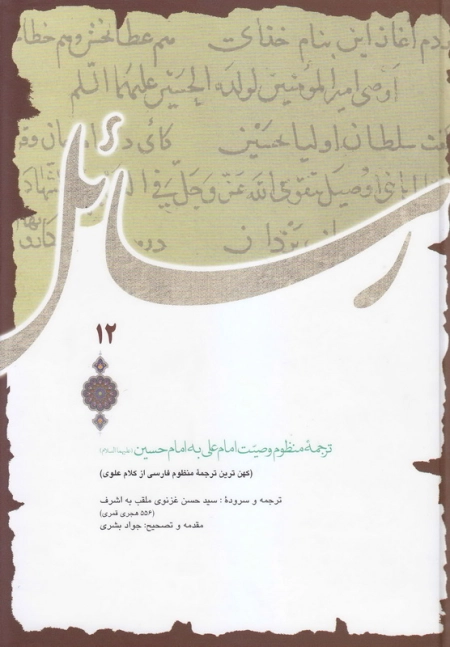 ردم آغاز این بنام خدای هم عطابخش و هم خطا
اوصی امیر المؤمنین لولده الحسین علیهما السلم
سلطان اولیا بحسین کای
اوصیک بتقوی الله عزّ وجلّ فی
یزدان
رسائل
۱۲
ترجمهٔ منظوم وصیّت امام علی به امام حسین (علیهما السلام)
(کهن ترین ترجمهٔ منظوم فارسی از کلام علوی)
ترجمه و سرودهٔ : سید حسن غزنوی ملقب به اشرف
(۵۵۶ هجری قمری)
مقدمه و تصحیح: جواد بشری